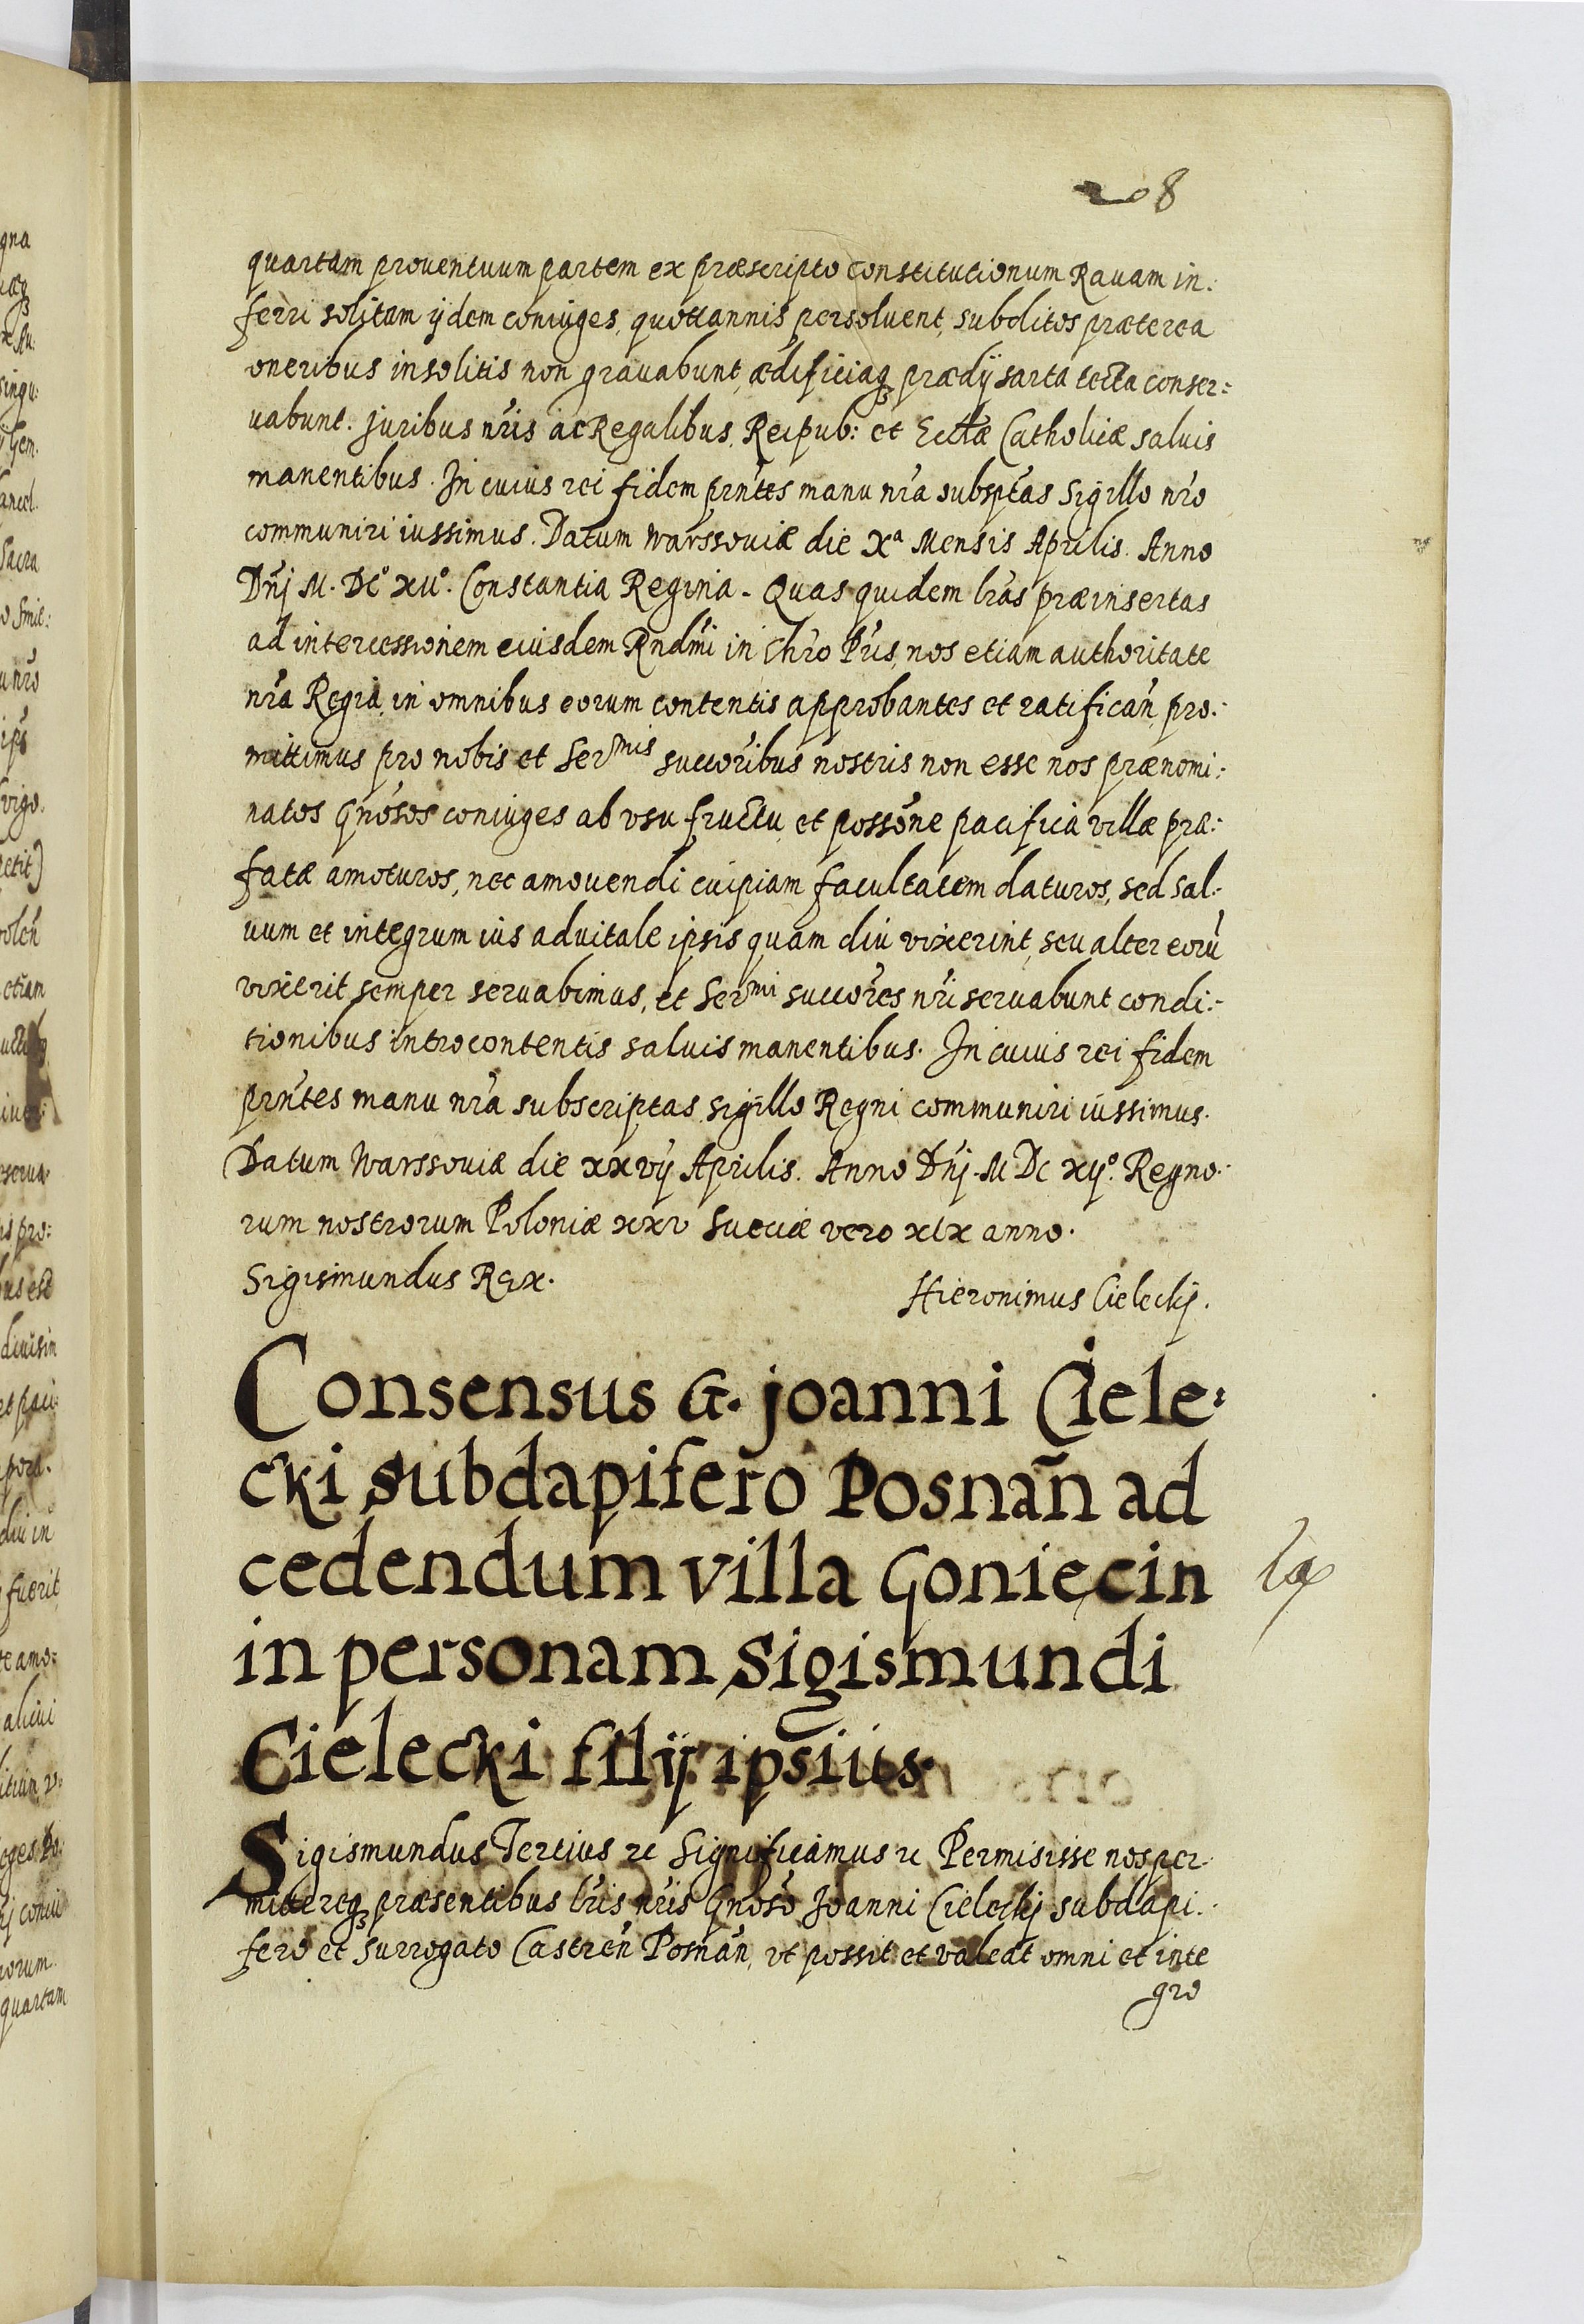 208
quartam prouentuum partem ex præscripto Constitutionum Rauam in:
ferri solitam ijdem coniuges, quottannis persoluent, subditos præterea
oneribus insolitis non grauabunt, ædificiaqꝫ prædij sarta tecta conser:
uabunt. Juribus nr̃is ac Regalibus, Reipub: et Eccłæ Catholicæ saluis
manentibus. In cuius rei fidem prn̄tes manu nr̃a subsptas Sigillo nr̃o
communiri iussimus. Datum Warssouiæ die Xª Mensis Aprilis. Anno
Dn̄j M. DC° XII°. Constantia Regina. Quas quidem lr̃as præinsertas
ad intercessionem eiusdem Rndm̄i in Chr̃o Pr̃is, nos etiam authoritate
nr̃a Regia, in omnibus eorum contentis approbantes et ratifican̄, pro:
mittimus pro nobis et Serᵐⁱˢ succor̃ibus nostris non esse nos prænomi:
natos Gnõsos coniuges ab vsu fructu et possõne pacifica villæ præ:
fatæ amoturos, nec amouendi cuipiam facultatem daturos, sed sal:
uum et integrum ius aduitale ipsis quam diu vixerint, seu alter eorũ
vixerit semper seruabimus, et Serᵐⁱ succor̃es nr̃i seruabunt condi:
tionibus introcontentis saluis manentibus. In cuius rei fidem
prn̄tes manu nr̃a subscriptas Sigillo Regni communiri iussimus.
Datum Warssouiæ die xxvij Aprilis. Anno Dn̄j. M DC xij°. Regno:
rum nostrorum Poloniæ xxv Sueciæ vero xix anno.
Sigismundus Rex.
Hieronimus Cieleckj.
Consensus G. Joanni Ciele:
cki subdapifero Posnan̄ ad
cedendum villa Gonięcin
in personam Sigismundi
Cielecki filij ipsius.
Sigismundus Tertius ꝛc Significamus ꝛc Permisisse nos per:
mittereqꝫ præsentibus lr̃is nr̃is Gnõso Joanni Cieleckj subdapi:
fero et surrogato Castren̄ Posnan̄, vt possit et valeat omni et inte
gro